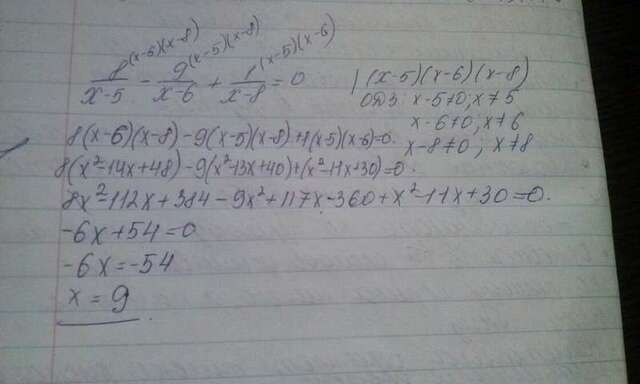 8^(x-6)(x-8)/(x-5) - 9^(x-5)(x-8)/(x-6) + 1^(x-5)(x-6)/(x-8) = 0 | (x-5)(x-6)(x-8)
ОДЗ. x-5≠0; x≠5
x-6≠0; x≠6
x-8≠0; x≠8
8(x-6)(x-8)-9(x-5)(x-8)+1(x-5)(x-6)=0.
8(x²-14x+48)-9(x²-13x+40)+(x²-11x+30)=0.
8x²-112x+384-9x²+117x-360+x²-11x+30=0.
-6x+54=0
-6x=-54
x=9